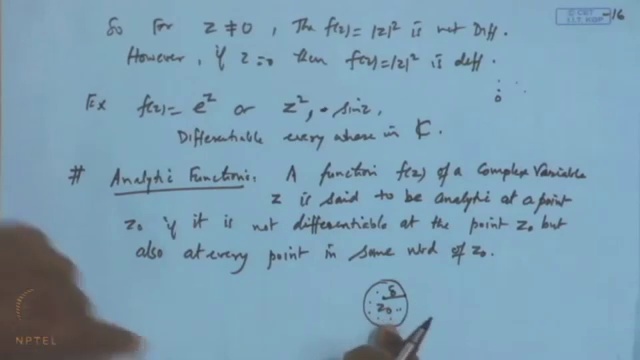 © CET
I.I.T. KGP
-16
So For z ≠ 0, The f(z) = |z|² is not Diff.
However, if z = 0 then f(z) = |z|² is diff.
0
Ex f(z) = e^z or z², sin z,
Differentiable every where in ₵.
# Analytic Function: A function f(z) of a complex Variable
z is said to be analytic at a point
z₀ if it is not differentiable at the point z₀ but
also at every point in some nbd of z₀.
δ
z₀
NPTEL